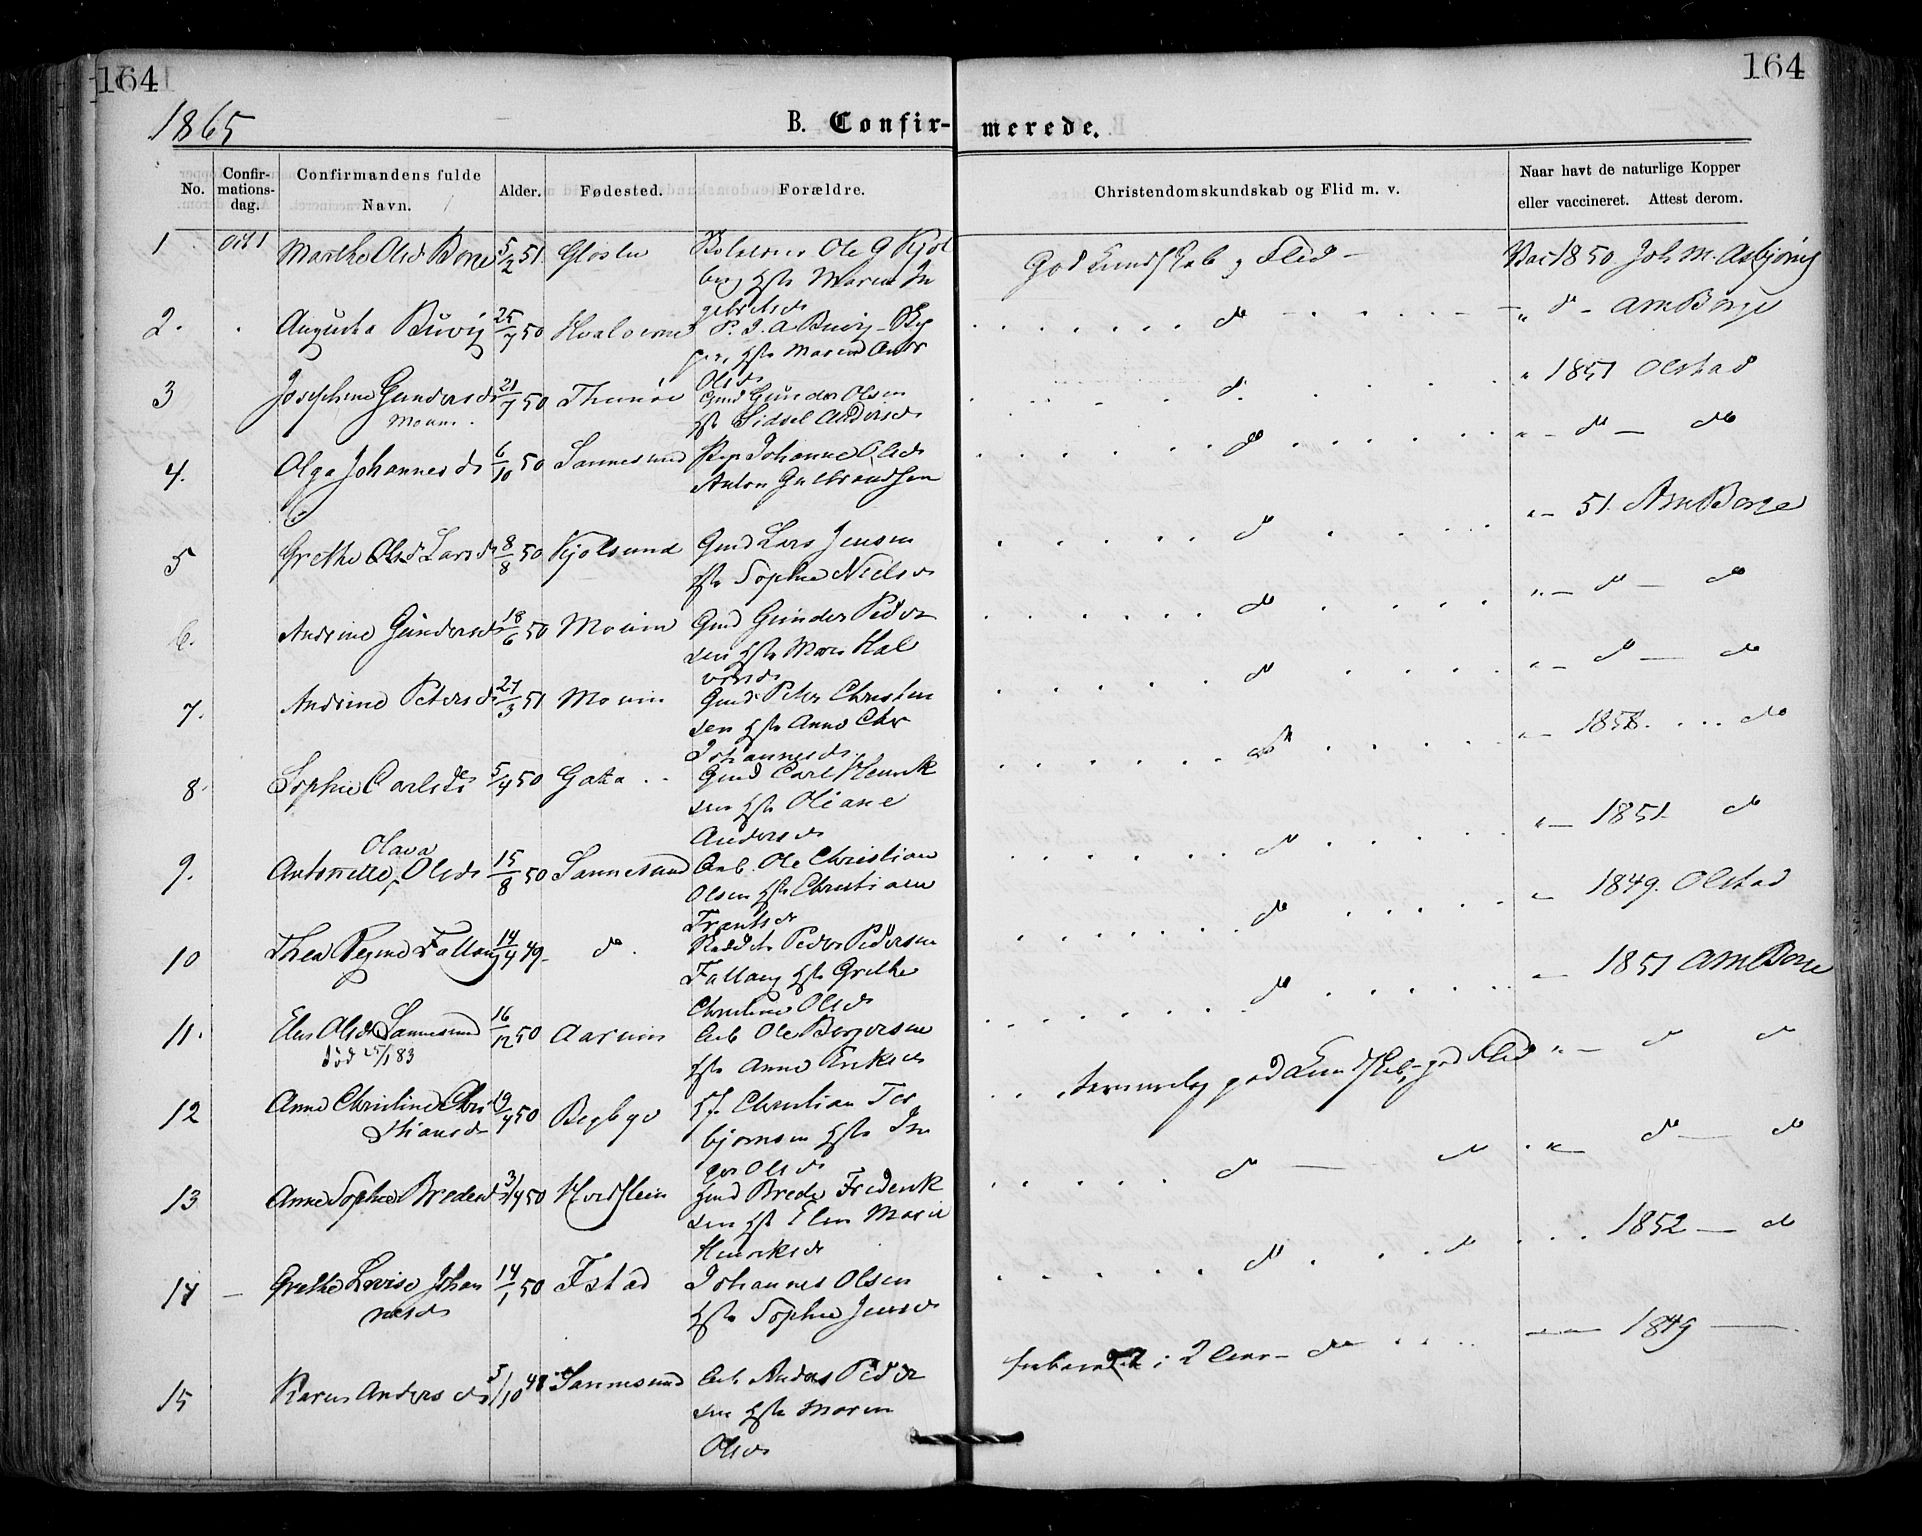 164
164
1865
B. Confir-merede.
No. Confirmationsdag. Confirmandens fulde Navn. Alder. Fødested. Forældre. Christendomskundskab og Flid m. v. Naar havt de naturlige Kopper eller vaccineret. Attest derom.
1 Oct 1 Marthe Olsd 5/2 51 Ole G
god Kundskab g Flid - Vac 1850 Joh M. Asbjörns
berg Hst Maren In
gebretsd
2. Augusta Buvig 25/7 50 Hvaloerne P. J. A Buvig
d - " d - Am Borge
Hst Maren Andr
Olsd
3 Josephine Gundersd 21/7 50 Gmd Gunder Olsen
d. " 1851 Olstad
Moum. Hst Sidsel Andersd
4. Olga Johannesd 6/10 50 Sannesund Pige Johanne Olsd
d " - d - do
Anton Gulbrandsen
5 Grethe Olsd Larsd 8/8 50 Kjolsund Gmd Lars Jensen
d " - 51. Am Borge
Hst Sophie Nielsd
6. Andrine Gundersd 18/6 50 Moum Gmd Gunder Peder
d " - d - d
sen Hst Maren Hal
vorsd
7. Andrine Petersd 21/3 51 Moum Gmd Peter Christen
d " - d - do
sen Hst Anne Chr
Johannesd
8. Sophie Carlsd 5/4 50 Gata Gmd Carl Henrik
d " - 1858. do
sen Hst Oliane
Andersd
9. Antonette Olava Olsd 15/8 50 Sannesund Arb. Ole Christian
d " - 1851 d
Olsen Hst Christiane
Frantsd
10 Thea Regine Fallang 14/4 49 - d. Peder Pedersen
d " - 1849. Olstad
Fallang Hst Grethe
Christine Olsd
11. Olsd Sannesund 16/12 50 Aarum Arb Ole
d - 1851 Am Borge
död 25/1 83 Hst Anne Eriksd
12 Anne Christine Chris 19/4 50 Begbye Christian Tor
temmelig god Kundskab, god Flid " - d d
tiansd bjornsen Hst In
ger Olsd
13 Anne Sophie Bredesd 3/4 50 Gmd Brede Frederik
d - d " - d - d
sen Hst Elen Marie
Henriksd
14 - Grethe Lovise Johan 14/1 50 Istad Johannes Olsen
d d 1852 - d
nesd Hst Sophie Jensd
15 Karen Andersd 3/10 48 Sannesund Arb Anders Peder
i 2 - d - 1849 -
sen Hst Maren
Olsd